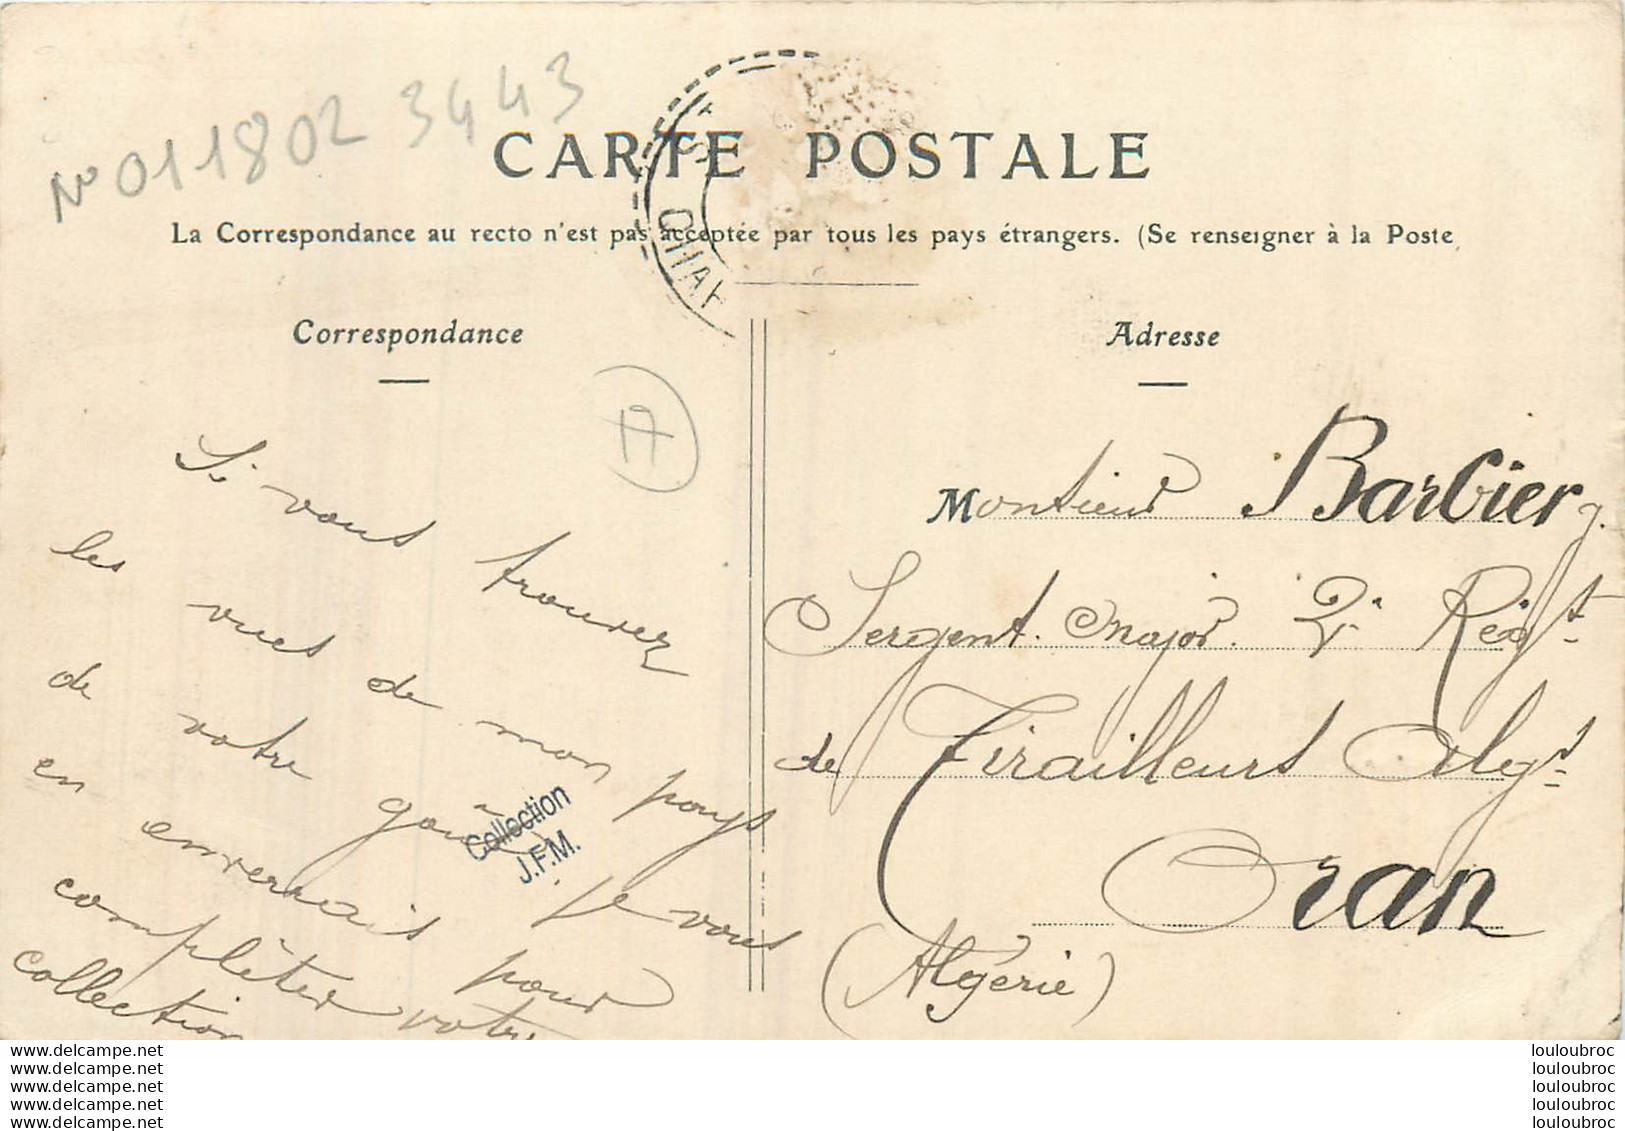 N° 011802 3443
CARTE POSTALE
La Correspondance au recto n'est pas acceptée par tous les pays étrangers. (Se renseigner à la Poste
CHAR
Correspondance
17
Si vous trouvez
les vues de mon pays
de votre goût Je vous
en enverrais pour
compléter votre
collection
Collection
J.F.M.
Adresse
Monsieur Barbier g.
Sergent. major. 2e Régt
de Tirailleurs Algrs
Oran
(Algérie)
www.delcampe.net
www.delcampe.net
www.delcampe.net
www.delcampe.net
www.delcampe.net
louloubroc
louloubroc
louloubroc
louloubroc
louloubroc